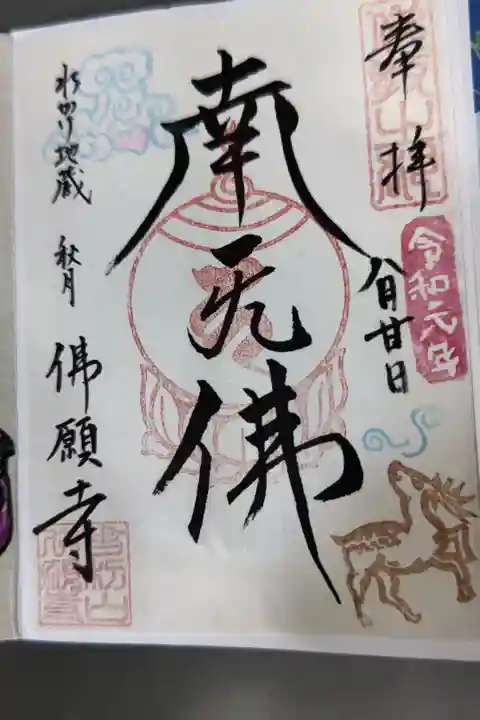 奉拝
令和元年
八月廿日
南无佛
水かけ地蔵 秋月 佛願寺